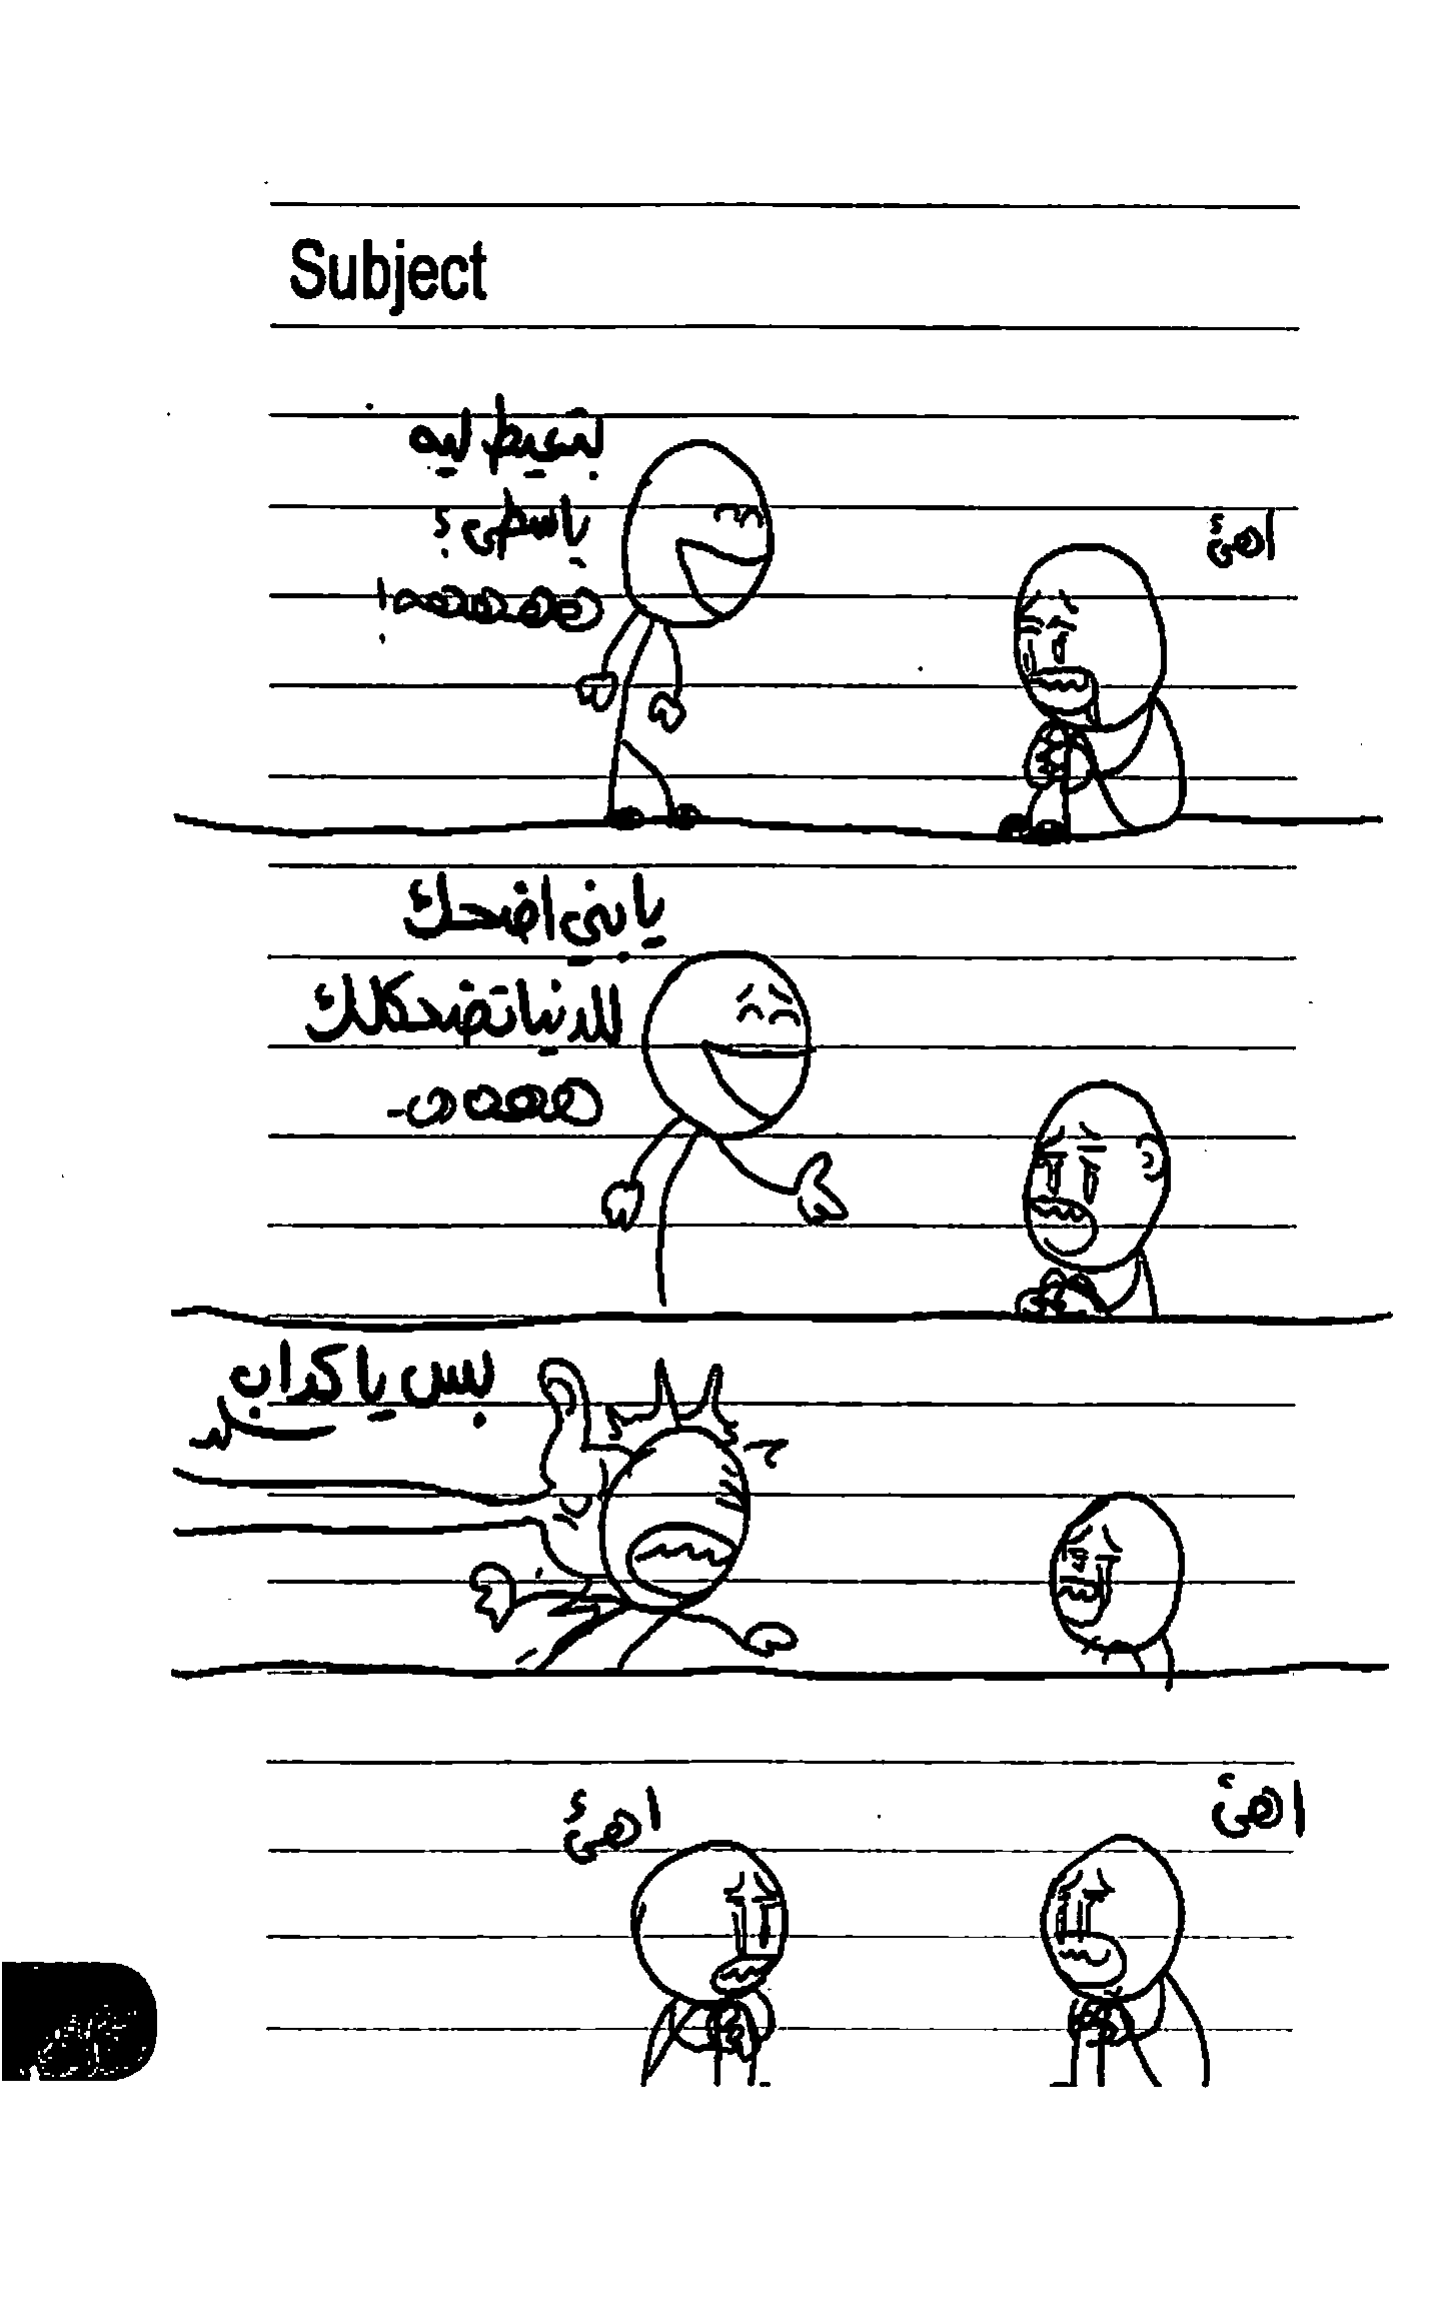 Subject
بتعيط ليه
ياسطي؟
ههههه!
اهئ
يا بني اضحك
للدنيا تضحكلك
هههه
بس يا كداب
اهئ
اهئ